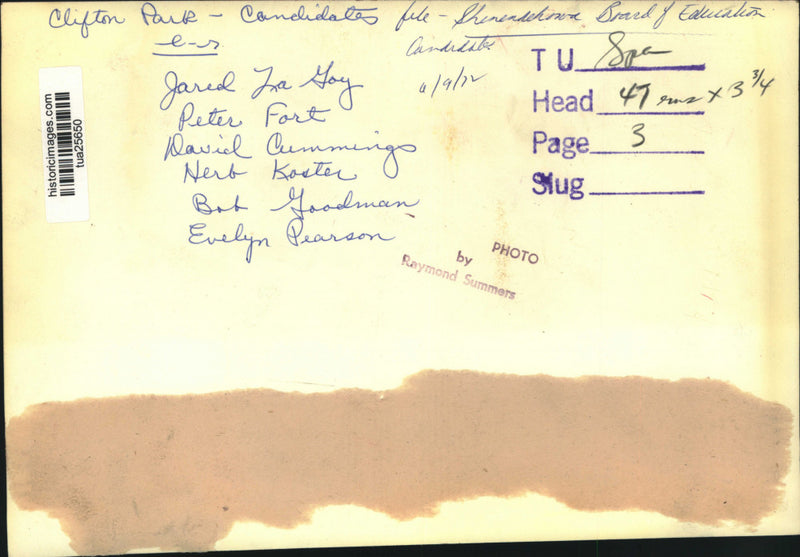 Clifton Park - Candidates file - Shenendehowa Board of Education
Candidates
l-r
6/9/72
Jared La Goy
Peter Fort
David Cummings
Herb Koster
Bob Goodman
Evelyn Pearson
TU
Head 47 ems x 3 3/4
Page 3
Slug
PHOTO
by
Raymond Summers
historicimages.com
tua25650